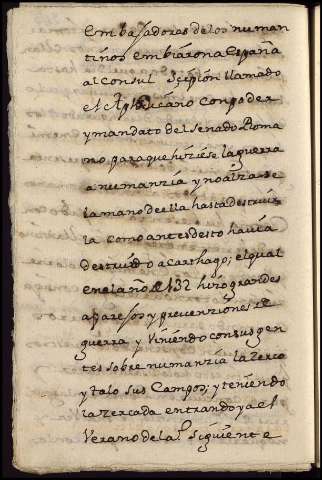 embajadores de los numan
tinos embiaron a España
al consul Sçipión llamado
el Aphricano con poder
y mandato del Senado Roma
no para que hiziese la guerra
a numanzia y no alzase
la mano de ella hasta destruir
la como antes desto havia
destruido a carthago; el qual
en el año de 132 hizo grandes
aparejos y prevenziones de
guerra y viniendo con sus gen
tes sobre numanzia la zerco
y talo sus Campos; y teniendo
la zercada entrando ya el
Verano de la siguiente